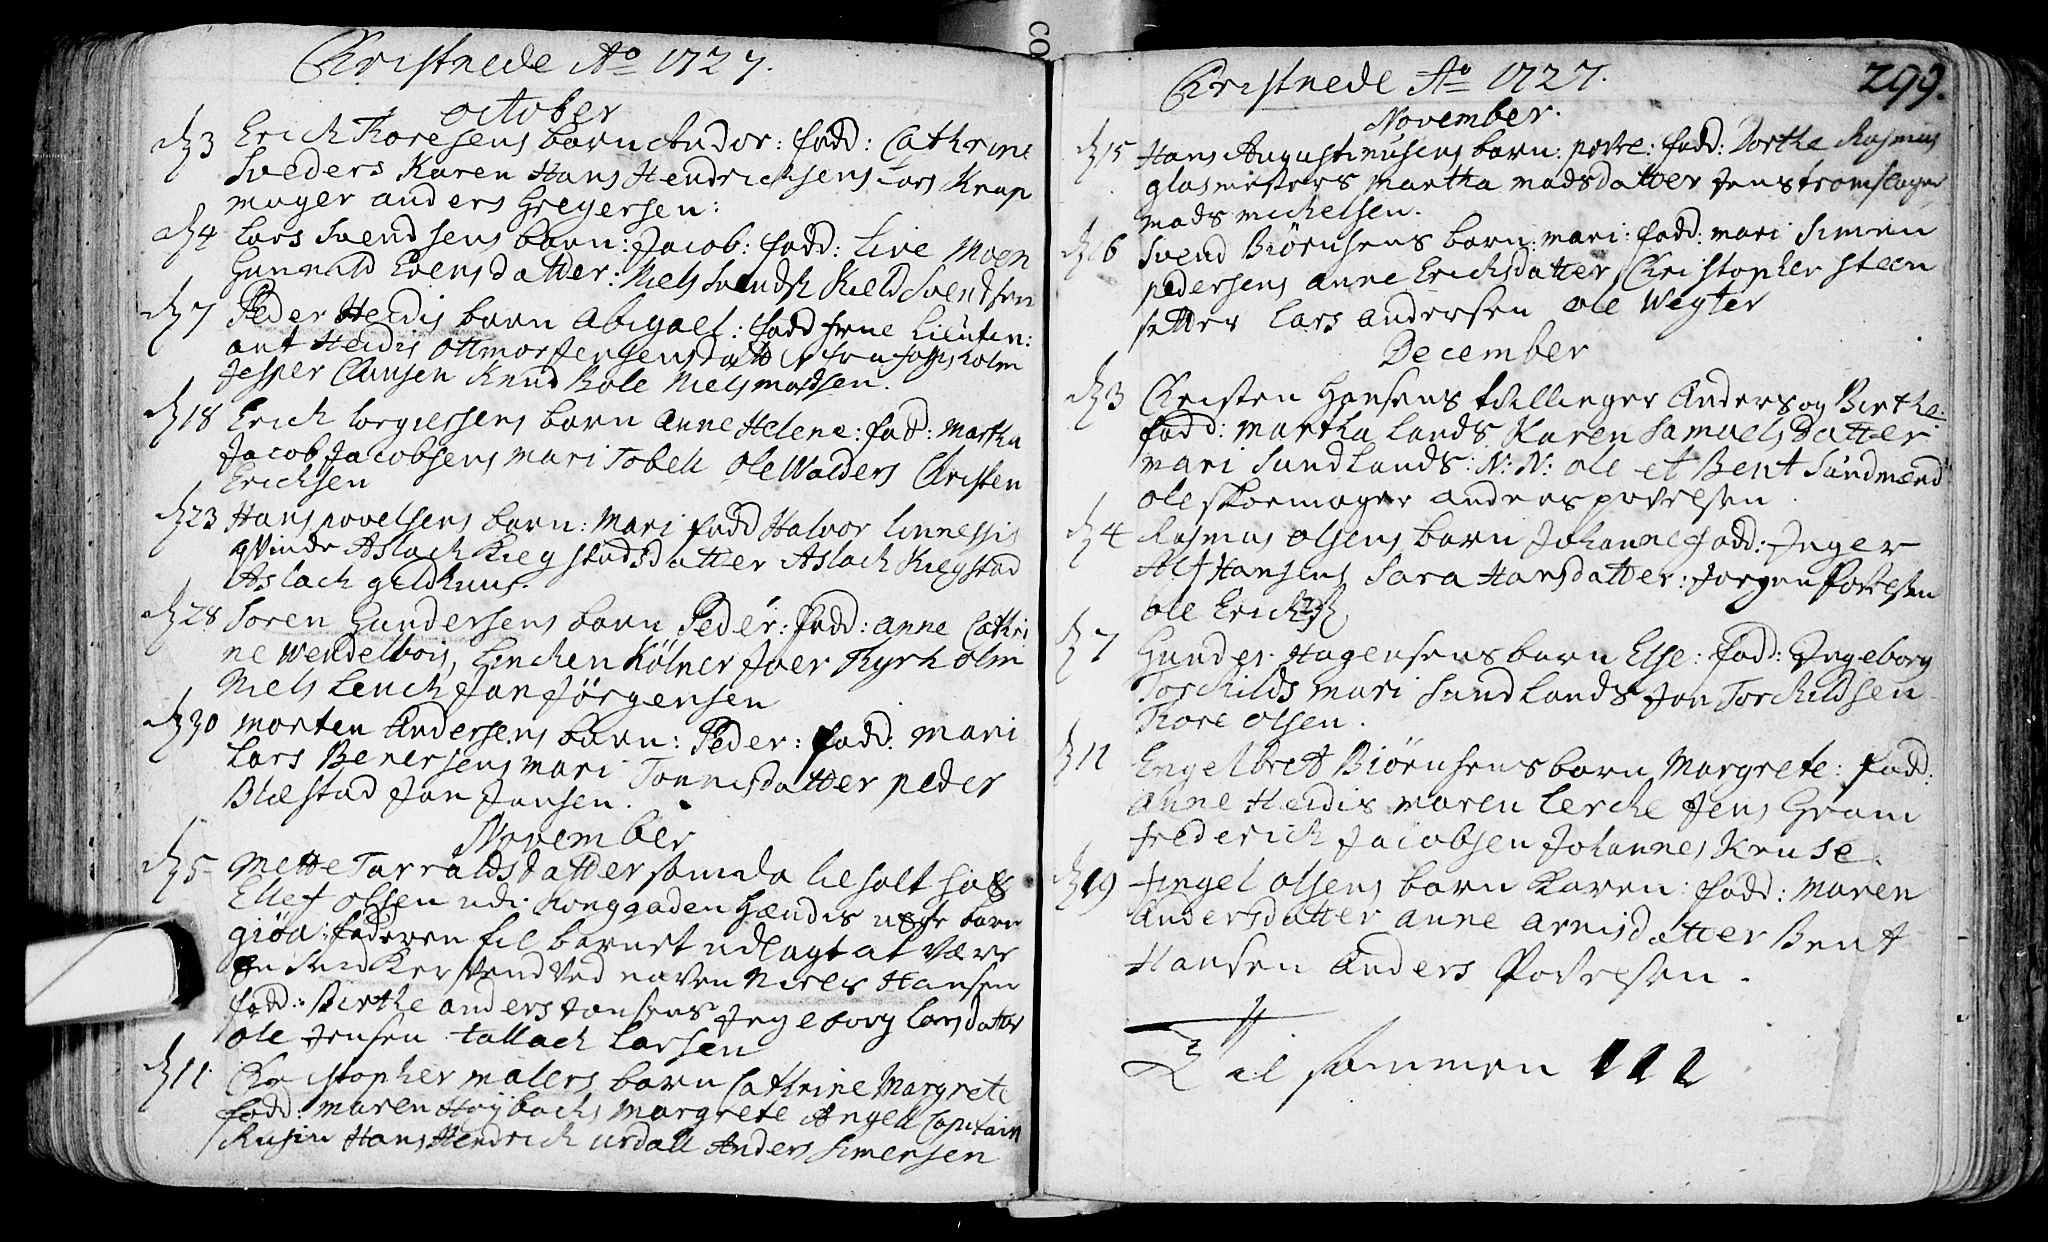 Christnede Aº 1727.
October
d 3 Erich Thoresens barn Andor: fadd: Cathrine
Sveders Karen Hans Hendrichsens Lars Knap
mager anders Gregersen:
d 4 Lars Svendsens barn: Jacob: fadd: Live Moen
Gunnild Evensdatter: Niels Svends: Kield Svendsen
d 7 Peder Heidis barn Abigael: fadd frue Lieuten:
ant Heidis Ottmor Jensensdatter fra fossesholm
Jesper Clausen Knud Bole Niels madsen.
d 18 Erich torgiersens barn Anne Helene: fadd: Martha
Jacob Jacobsens mari Tobell Ole Walders Christen
Erichsen
d 23 Hans povelsens barn: Mari fadd Halvor Linnessis
qvinde Aslach Kiegstadsdatter Aslach Kiegstad
Aslach gildhuus.
d 28 Soren Gundersens barn Peder: fadd: Anne Cathri
ne Wendelbois, Hinchen Kölner Joer Thyrholm
Niels Lench Jan Jörgensen
d 30 Morten Andersens barn: Peder: fadd: mari
Lars Berersens mari Tonnisdatter peder
Blæstad Jan Jansen.
November
d 5 Mette Tarraldsdatter som da tilholt hos
Ellef Olsen udi Konggaden Hændis uægte barn
giöa: faderen til barnet udlagt at være
en snidker svend ved naven Niels Hansen
fadd: Birthe anders Jansens Jngeborg Larsdatter
ole Jensen tallach Larsen
d 11 Christopher malers barn Cathrine Margrete
fadd: maren Höybachs Margrete Angell Capitain
Rusin Hans Hendrich Urdall Anders Simensen
Christnede Aº 1727.
299.
November.
d 15 Hans Augustinusens barn: povre: fadd: Dorthe Rasmus
glasmesters Martha madsdatter Jens tromslager
mads michelsen.
d 16 Svend Biörnsens barn: mari: fadd: mari Simen
pedersens anne Erichsdatter Christopher steen
setter Lars andersen ole Wegter
December
d 3 Christen Hansens tvillinger Anders og Birthe:
fadd: martha Lands Karen Samuelsdatter
mari Sundlands: N: N: ole et Bent Sundmænd
ole skoemager anders povelsen.
d 4 Rasmus olsens barn Johanne fadd: Jnger
Alf Hansens Sara Hansdatter: Jorgen Povelsen
ole Erichs:
d 7 Gunder Hagensens barn Else: fad: Jngeborg
Torchilds mari Sundlands Jon Torchildsen
Thore olsen.
d 11 Engelbret Biörnsens barn Margrete: fadd:
anne Heidis maren Lerche Jens Gram
frederich Jacobsen Johannes Kruse.
d 19 fingel olsens barn Karen: fadd: maren
Andersdatter anne arnisdatter Bent
Hansen Anders Povelsen.
Til sammen 111